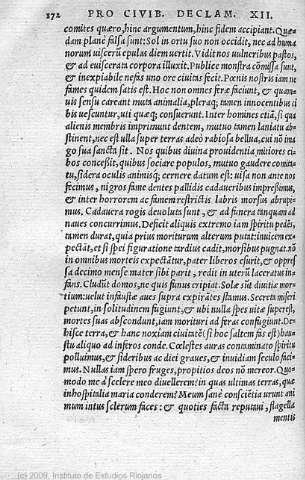 272 PRO CIVIB. DECLAM. XII.
comites quæro, hinc argumentum, hinc fidem accipiant. Quæ-
dam planè falsa sunt: Sol in ortu suo non occidit, nec ad huma
norum uiscerũ epulas diem uertit. Vidit nos uulneribus pastos,
& ad euiscerata corpora illuxit. Publicè monstra cõmissa sunt,
& inexpiabile nefas uno ore ciuitas fecit. Pœnis nostris iam ne
fames quidem satis est. Hoc non omnes feræ faciunt, & quan-
uis sensu careant muta animalia, pleraq; tamen innocentibus ci
bis uescuntur, uti quæq; consuerunt. Inter homines etiã, si qua
alienis membris imprimunt dentem, mutuo tamen laniatu abs-
tinent, nec est ulla super terras adeò rabiosa bellua, cui nõ ima
go sua sancta sit. Nos quibus diuina prouidentia mitiores ci-
bos concessit, quibus sociare populos, mutuo gaudere comita-
tu, sidera oculis animisq; cernere datum est: uisa non ante nos
fecimus, nigros fame dentes pallidis cadaueribus impressimus,
& inter horrorem ac famem restrictis labris morsus abrupi-
mus. Cadauera rogis deuoluta sunt, & ad funera tanquam ad
naues concurrimus. Deficit aliquis extremo iam spiritu pedes,
tamen durat, quia prius moriturum alterum putat: inuicem ex-
pectãt, et si spei figuratione tardius cadit, morsibus pugnãt. nõ
in omnibus mortis expectatur, pater liberos esurit, & oppres
sa decimo mense mater sibi parit, redit in uterũ laceratus in-
fans. Cludũt domos, ne quis funus eripiat. Solæ sũt diuitiæ mor-
tium: uelut infaustæ aues supra expirãtes stamus. Secreta miseri
petunt, in solitudinem fugiunt, & ubi nulla spes uitæ superest,
mortes suas abscondunt, iam morituri ad feras confugiunt. De-
hisce terra, & hanc noxiam ciuitatē (si hoc saltem fas est) haus-
tu aliquo ad inferos conde. Cœlestes auras contaminato spiritu
polluimus, & sideribus ac diei graues, & inuidiam seculo faci-
mus. Nullas iam spero fruges, propitios deos nõ mereor. Quo-
modo me à scelere meo diuellerem? in quas ultimas terras, quæ
inhospitalia maria conderem? Meum sanè consciẽtia urunt ani
mum intus scelerum faces: & quoties facta reputaui, flagella
mentis
(c) 2009, Instituto de Estudios Riojanos